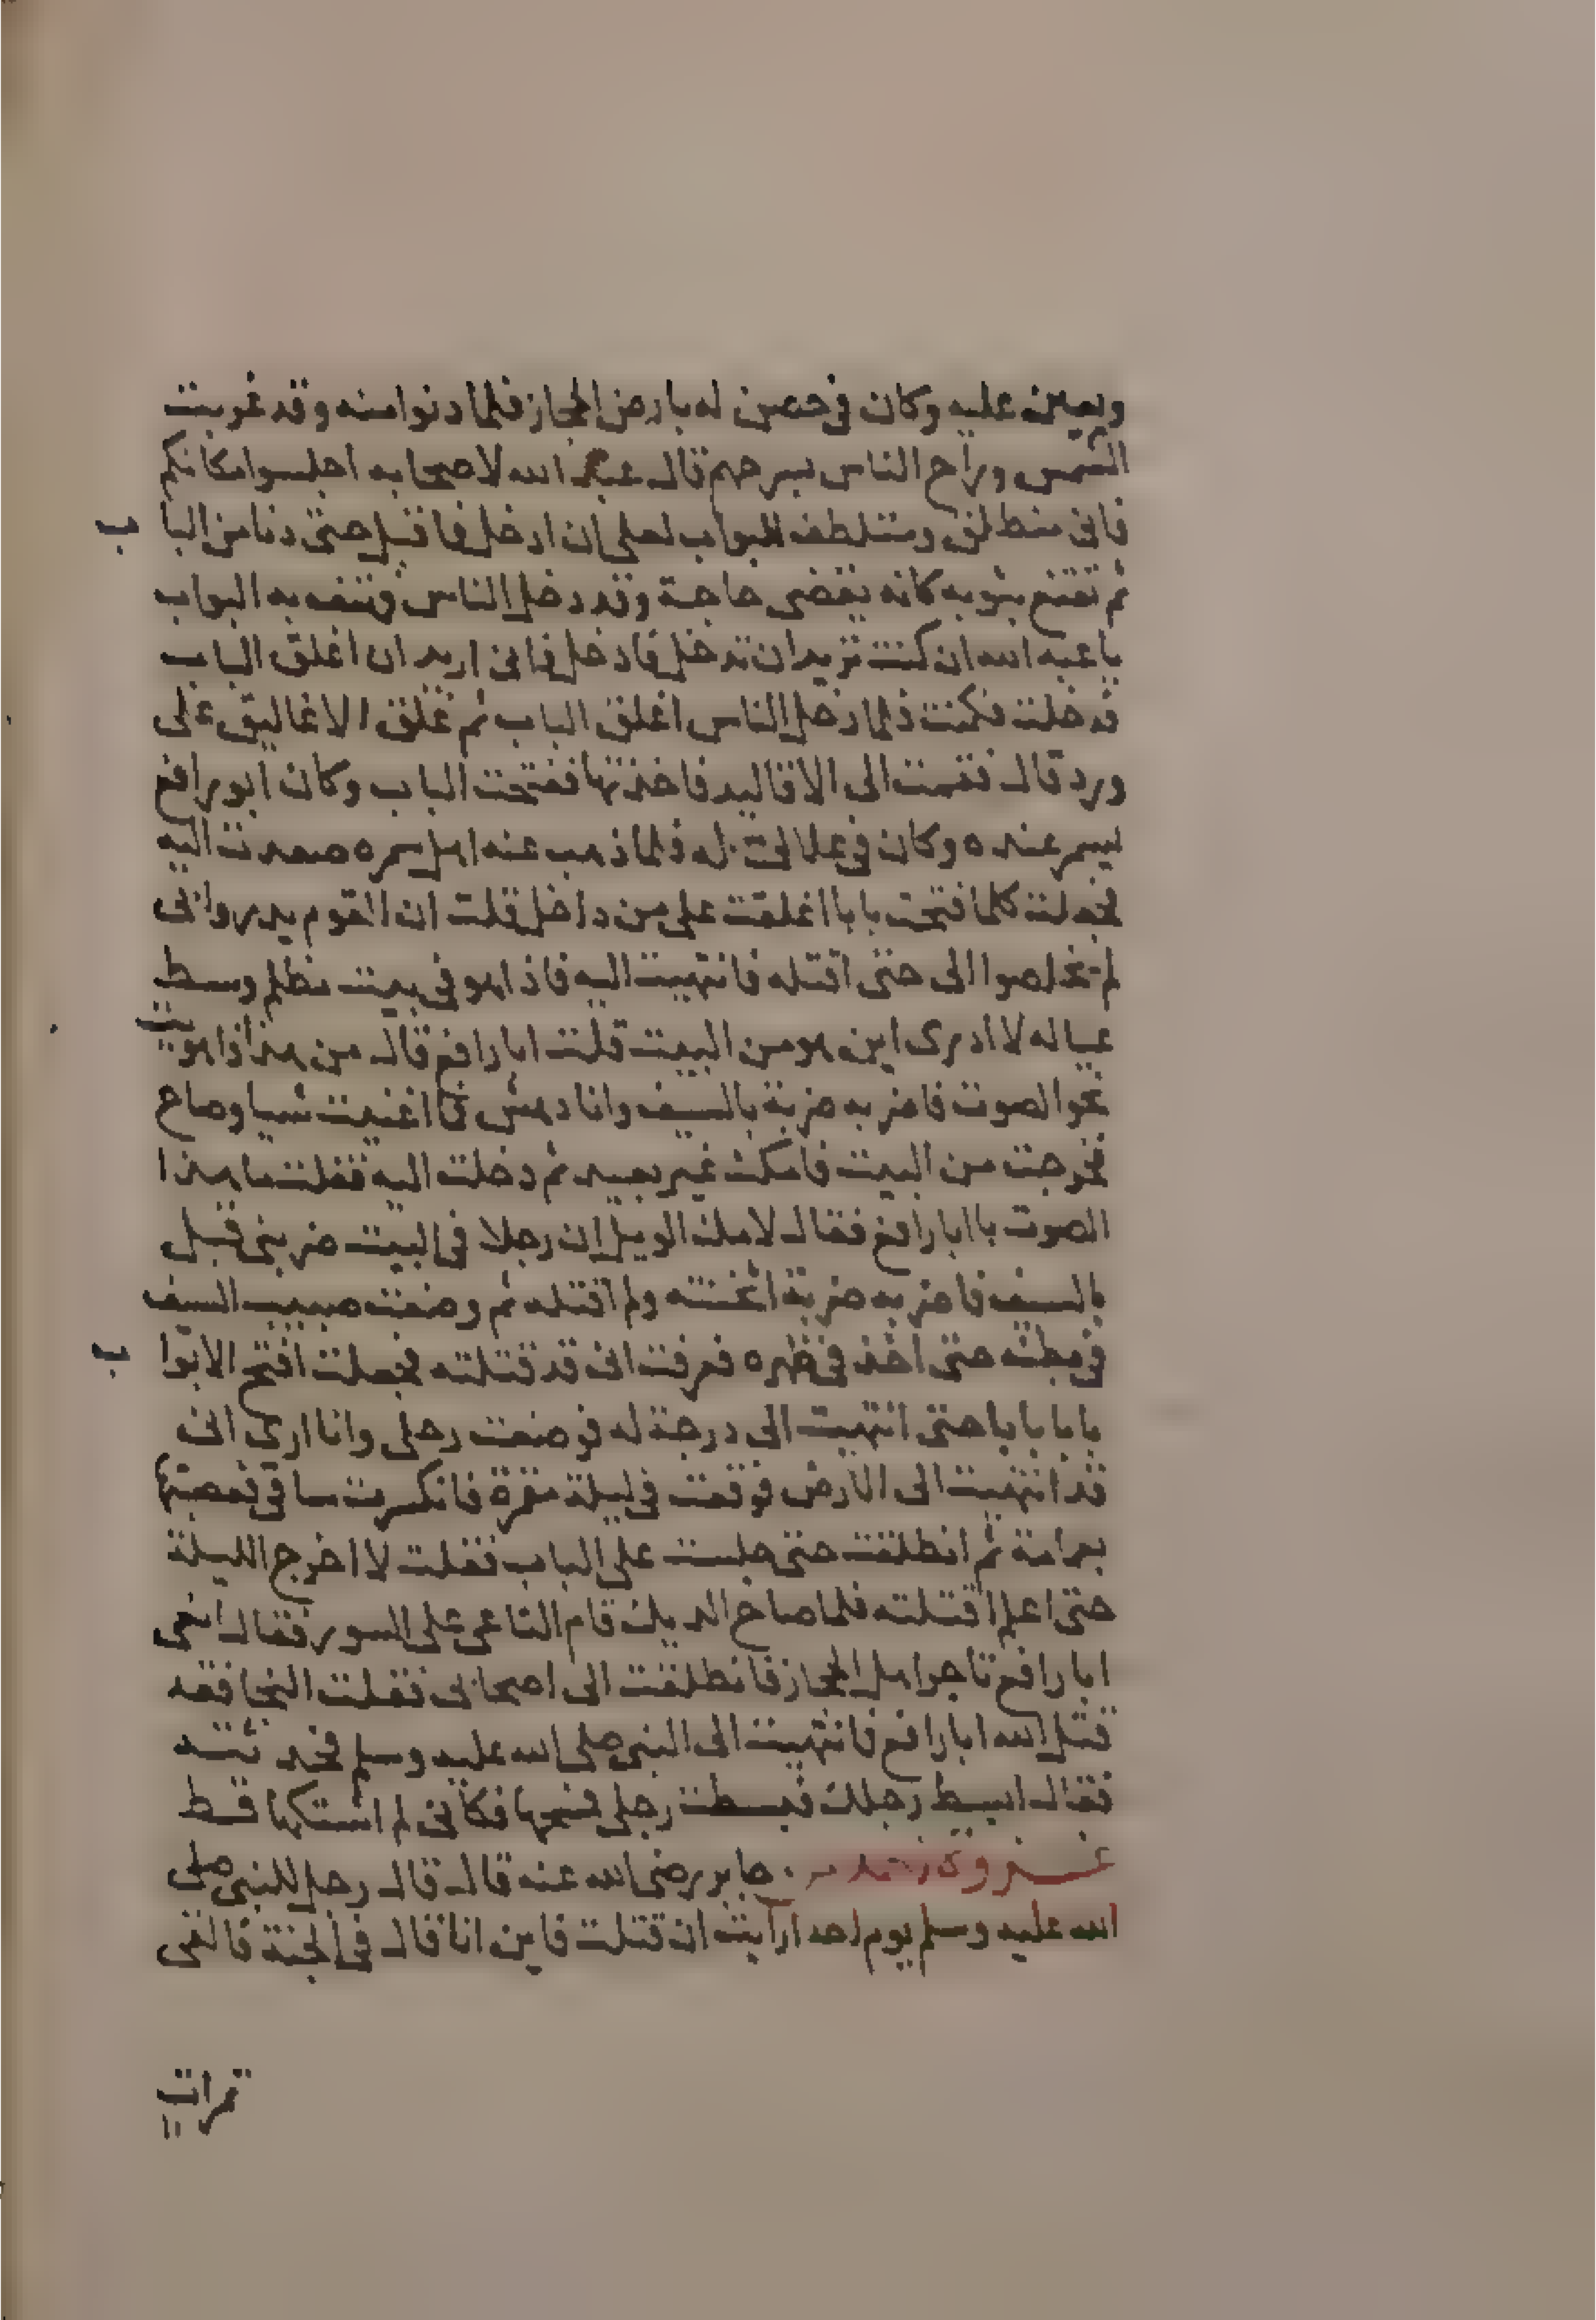 ويعين عليه وكان في حصن له بارض الحجاز فلما دنوا منه وقد غربت
الشمس وراح الناس بسرحهم قال عبد الله لاصحابه اجلسوا مكانكم
فاني منطلق ومتلطف للبواب لعلي ان ادخل فاقبل حتى دنا من الباب
ثم تقنع بثوبه كانه يقضي حاجة وقد دخل الناس فهتف به البواب
يا عبد الله ان كنت تريد ان تدخل فادخل فاني اريد ان اغلق الباب
فدخلت فكمنت فلما دخل الناس اغلق الباب ثم علق الاغاليق على
ود قال فقمت الى الاقاليد فاخذتها ففتحت الباب وكان ابو رافع
يسمر عنده وكان في علالي له فلما ذهب عنه اهل سمره صعدت اليه
فجعلت كلما فتحت بابا اغلقت علي من داخل قلت ان القوم
لم يخلصوا الي حتى اقتله فانتهيت اليه فاذا هو في بيت مظلم وسط
عياله لا ادري اين هو من البيت قلت ابا رافع قال من هذا فاهويت
نحو الصوت فاضربه ضربة بالسيف وانا دهش فما اغنيت شيا وصاح
فخرجت من البيت فامكث غير بعيد ثم دخلت اليه فقلت ما هذا
الصوت يا ابا رافع فقال لامك الويل ان رجلا في البيت ضربني قبل
بالسيف فاضربه ضربة اثخنته ولم اقتله ثم وضعت صبيب السيف
في بطنه حتى اخذ في ظهره فعرفت اني قد قتلته فجعلت افتح الابواب
بابا بابا حتى انتهيت الى درجة له فوضعت رجلي وانا ارى اني
قد انتهيت الى الارض فوقعت في ليلة مقمرة فانكسرت ساقي فعصبتها
بعمامة ثم انطلقت حتى جلست على الباب فقلت لا اخرج الليلة
حتى اعلم اقتلته فلما صاح الديك قام الناعي على السور فقال انعى
ابا رافع تاجر اهل الحجاز فانطلقت الى اصحابي فقلت النجا فقد
قتل الله ابا رافع فانتهيت الى النبي صلى الله عليه وسلم فحدثته
فقال ابسط رجلك فبسطت رجلي فمسحها فكاني لم اشتكها قط
غزوة احد جابر رضي الله عنه قال قال رجل للنبي صلى
الله عليه وسلم يوم احد ارايت ان قتلت فاين انا قال في الجنة فالقى
تمرات